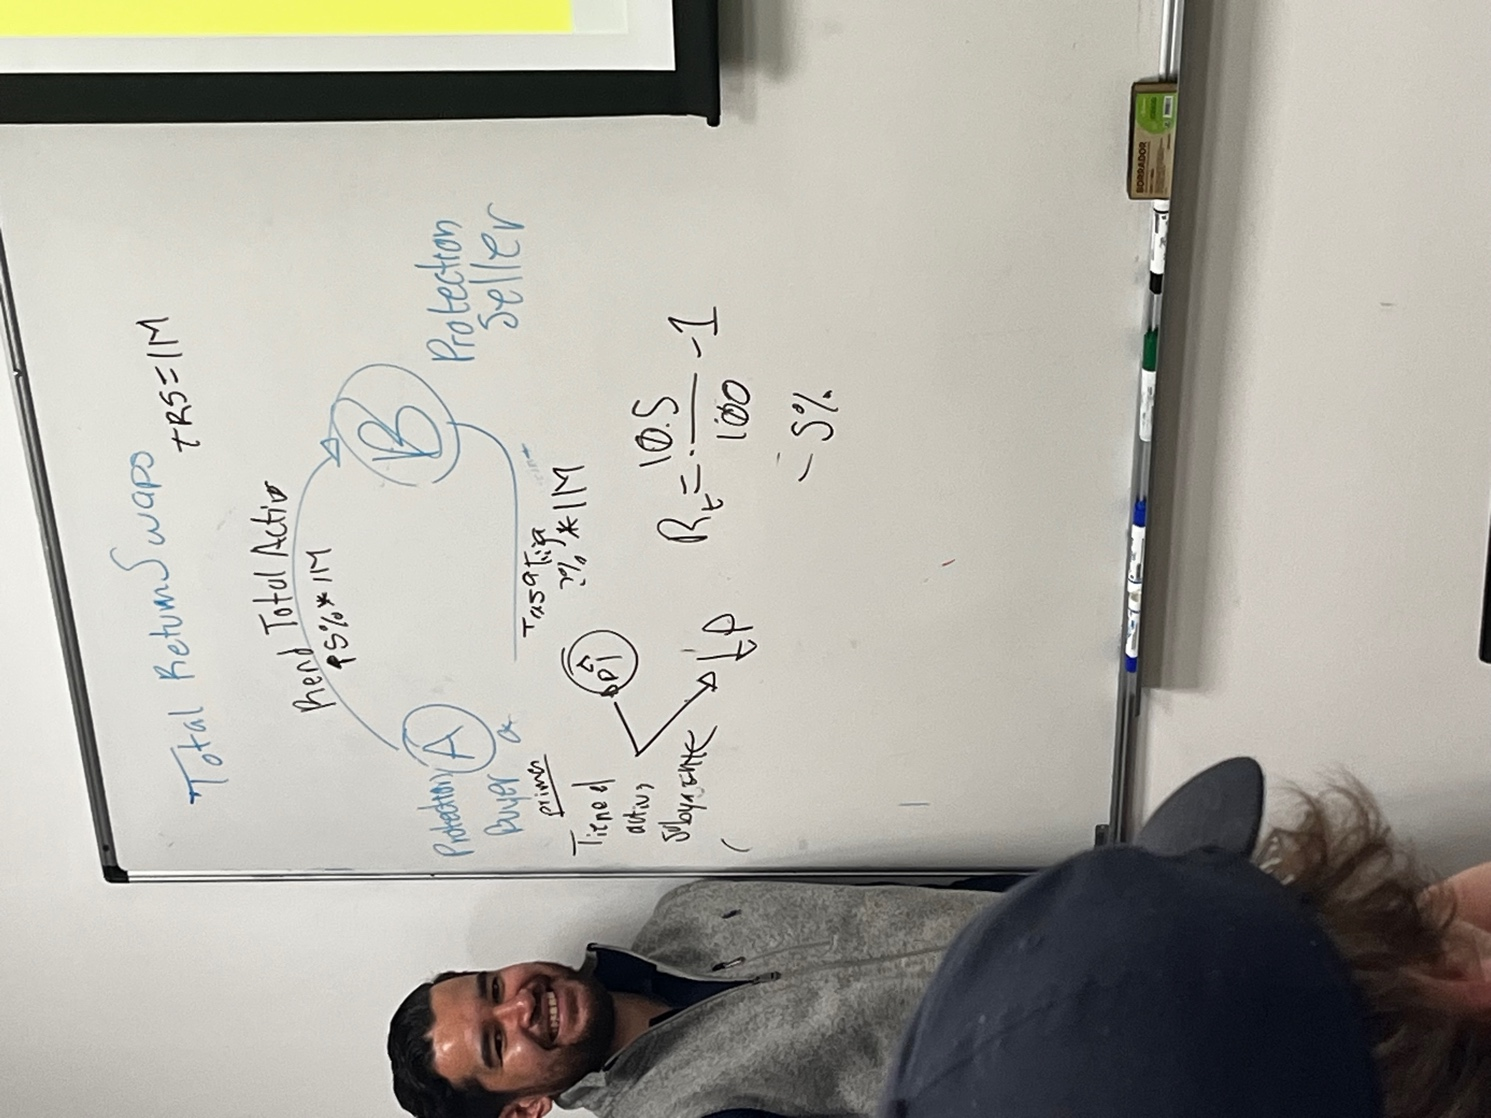 Total Return Swaps
TRS=1M
Rend Total Activo
5% * 1M
A
B
Protection
Buyer
Protection
Seller
Tasa Fija
2% * 1M
primer
Tiene el
activo
Subyacente
R_t = 10.5 / 100 - 1
= 5%
BORRADOR